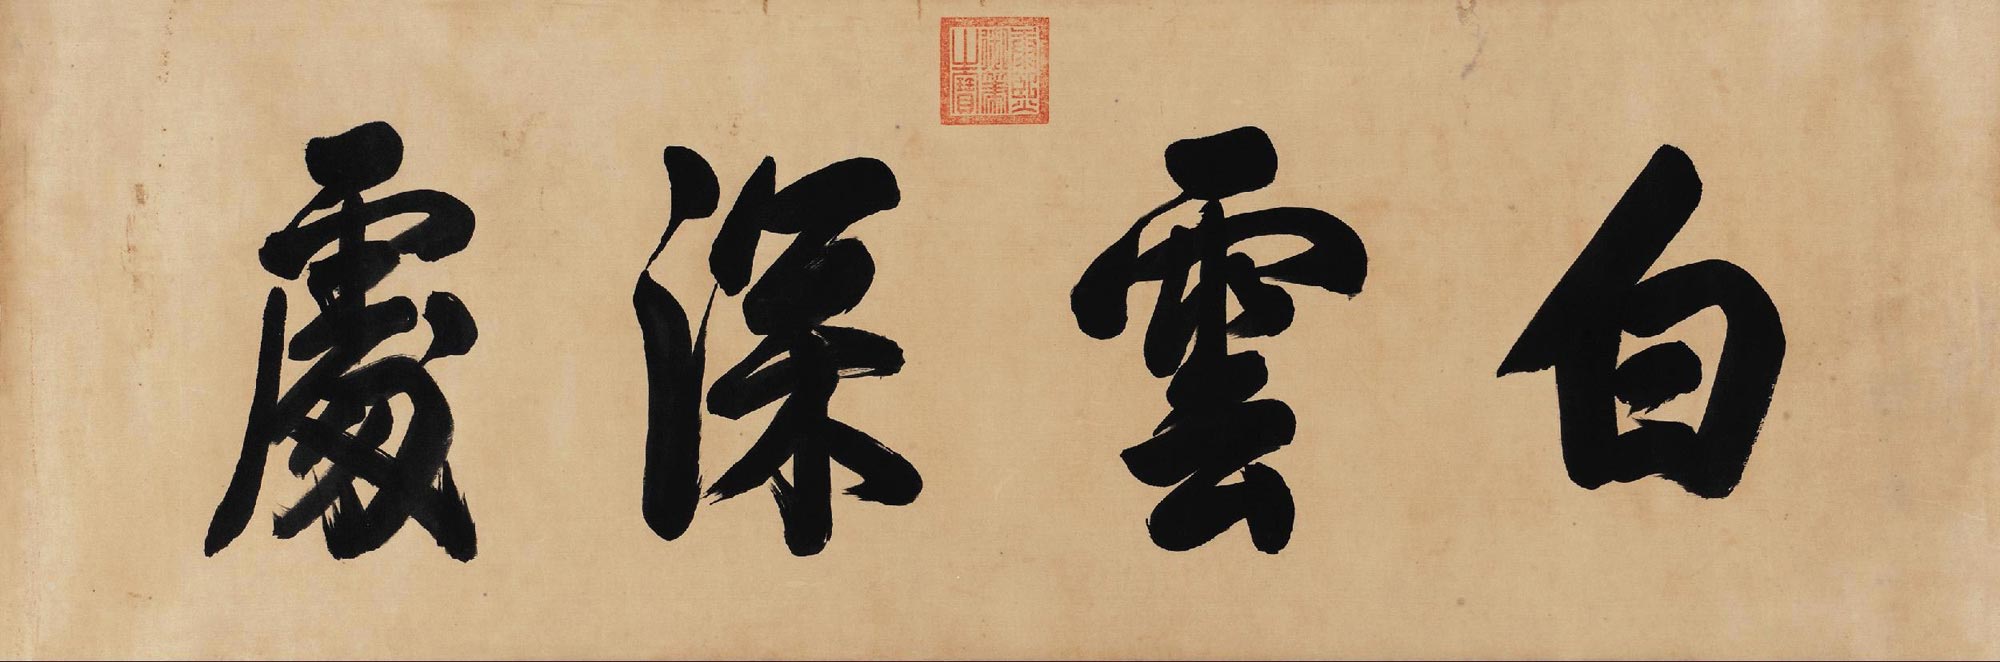 白雲深處
康熙御筆之寶